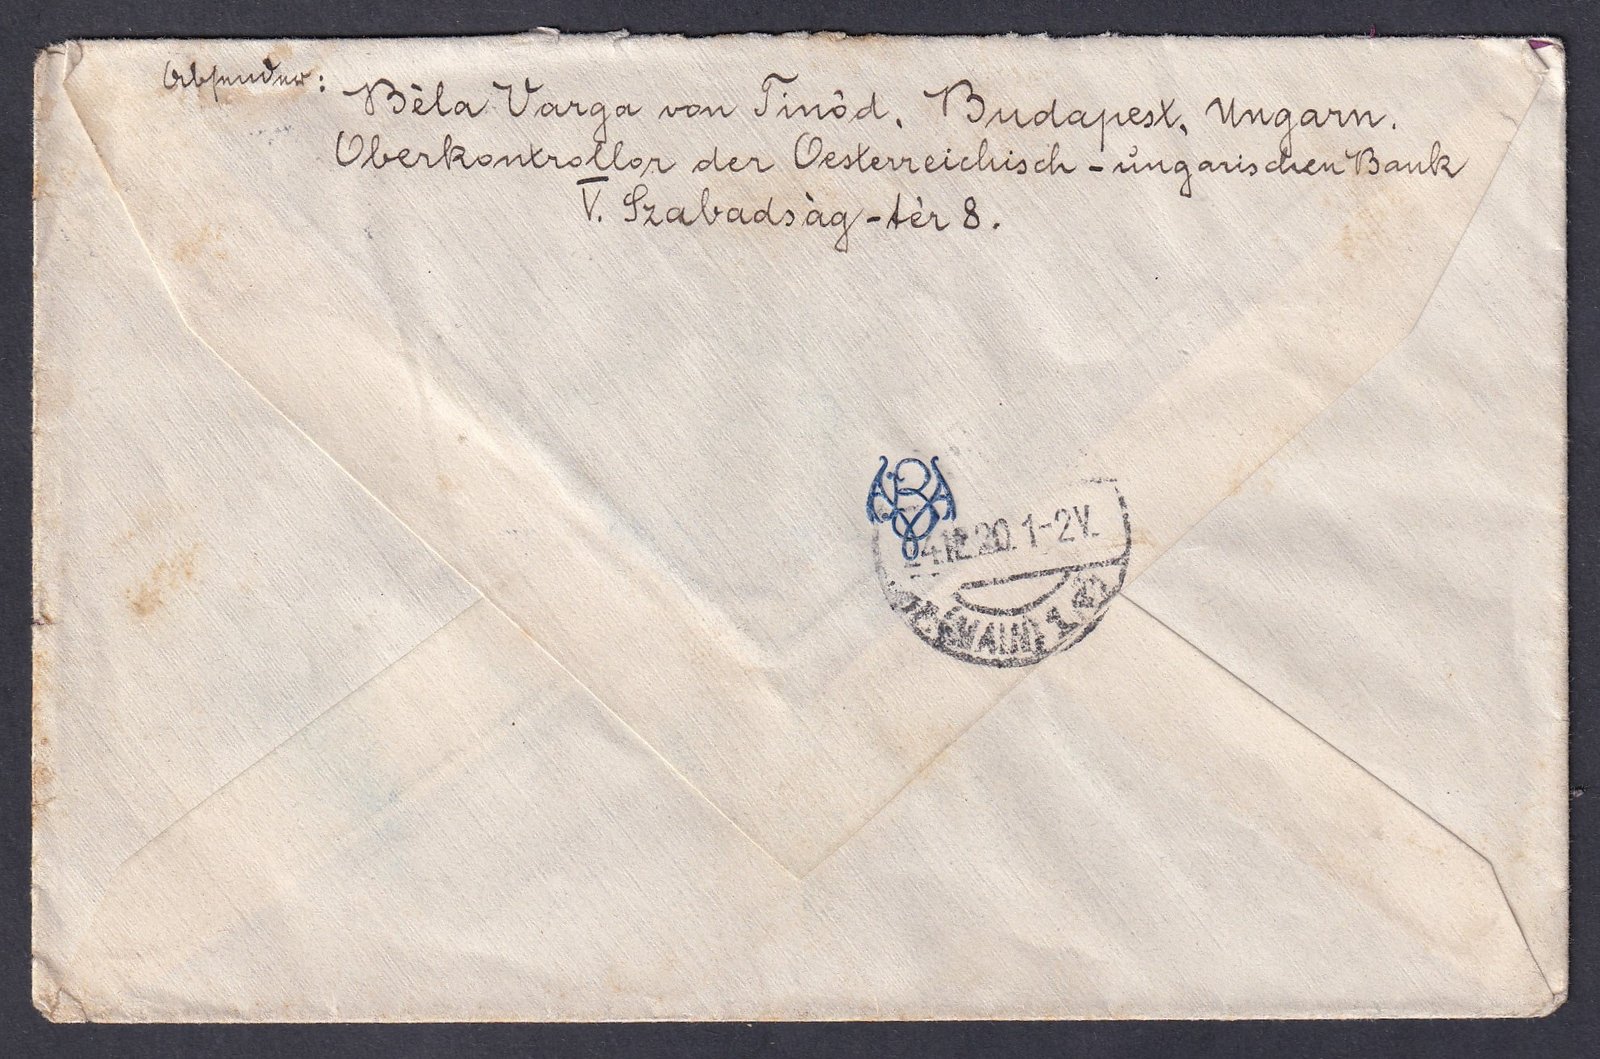 Absender:
Bèla Varga von Tinód, Budapest, Ungarn.
Oberkontrollor der Oesterreichisch-ungarischen Bank
V. Szabadsàg-tèr 8.
12.20. 1-2V.
(MAIN) 1